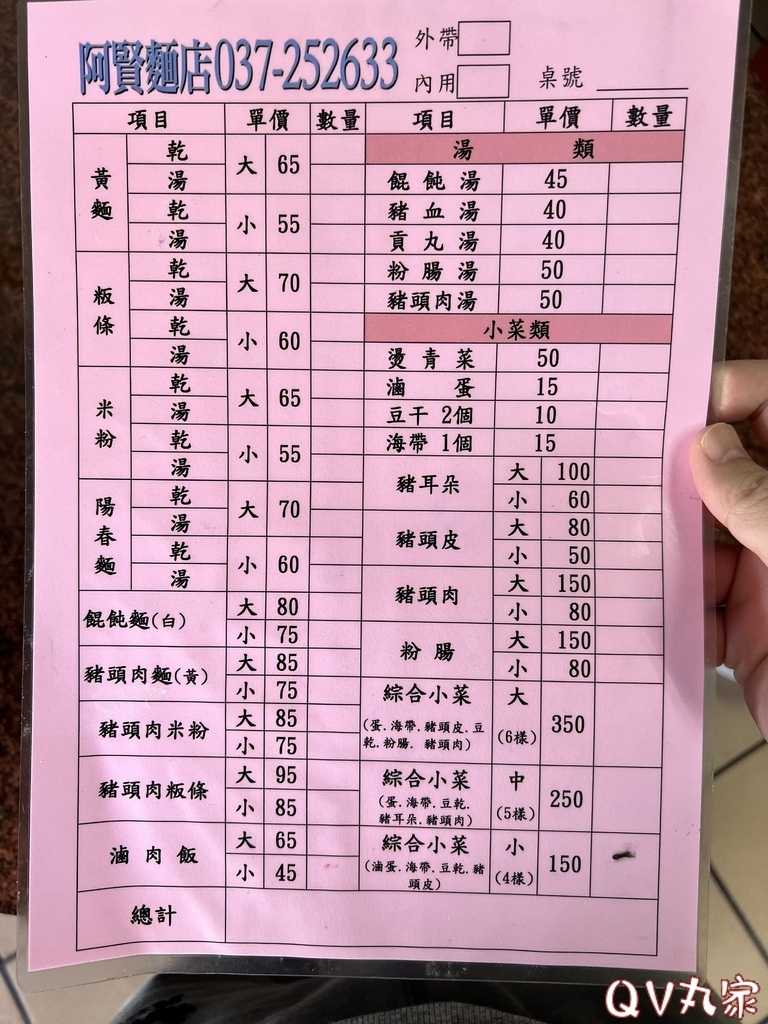 阿賢麵店037-252633
外帶
內用
桌號
項目 單價 數量
黃麵 乾 湯 大 65
乾 湯 小 55
粄條 乾 湯 大 70
乾 湯 小 60
米粉 乾 湯 大 65
乾 湯 小 55
陽春麵 乾 湯 大 70
乾 湯 小 60
餛飩麵(白) 大 80
小 75
豬頭肉麵(黃) 大 85
小 75
豬頭肉米粉 大 85
小 75
豬頭肉粄條 大 95
小 85
滷肉飯 大 65
小 45
總計
項目 單價 數量
湯類
餛飩湯 45
豬血湯 40
貢丸湯 40
粉腸湯 50
豬頭肉湯 50
小菜類
燙青菜 50
滷蛋 15
豆干 2個 10
海帶 1個 15
豬耳朵 大 100
小 60
豬頭皮 大 80
小 50
豬頭肉 大 150
小 80
粉腸 大 150
小 80
綜合小菜 大 350
(蛋.海帶.豬頭皮.豆
乾.粉腸. 豬頭肉) (6樣)
綜合小菜 中 250
(蛋.海帶.豆乾.
豬耳朵.豬頭肉) (5樣)
綜合小菜 小 150
(滷蛋.海帶.豆乾.豬
頭皮) (4樣)
QV丸家